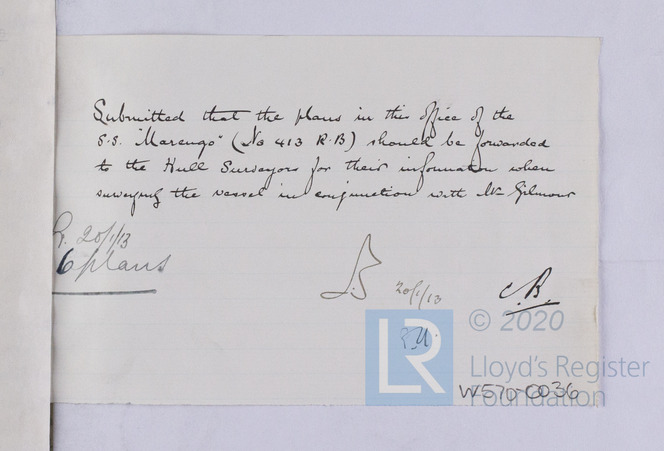 Submitted that the plans in this office of the
S.S. "Marengo" (No 413 R.B) should be forwarded
to the Hull Surveyors for their information when
surveying the vessel in conjunction with Mr Gilmour
20/1/13
6 plans
20/1/13
C.B.
© 2020
LR
Lloyd's Register
Foundation
W570-0036